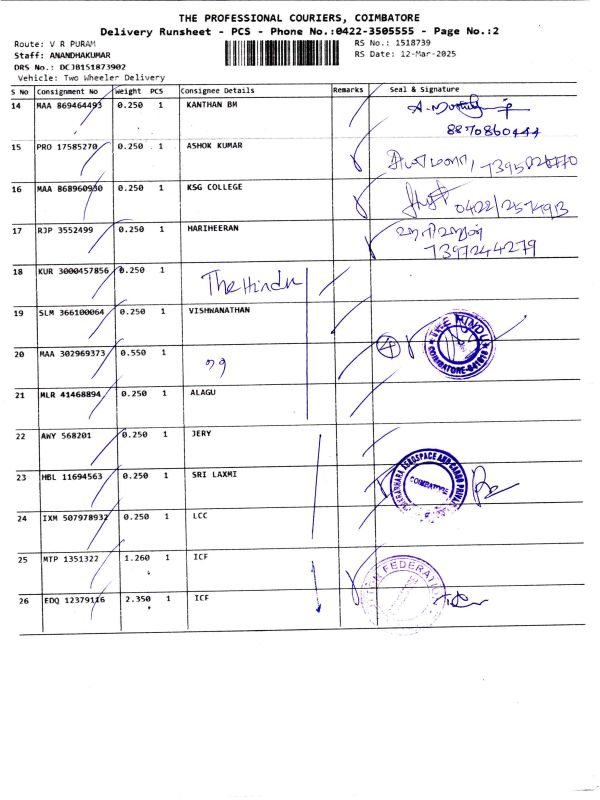 THE PROFESSIONAL COURIERS, COIMBATORE
Delivery Runsheet - PCS - Phone No.:0422-3505555 - Page No.:2
Route: V R PURAM RS No.: 1518739
Staff: ANANDHAKUMAR RS Date: 12-Mar-2025
DRS No.: DCJB151873902
Vehicle: Two Wheeler Delivery
S No Consignment No Weight PCS Consignee Details Remarks Seal & Signature
14 MAA 869464493 0.250 1 KANTHAN BM
8870860444
15 PRO 17585270 0.250 1 ASHOK KUMAR
16 MAA 868960930 0.250 1 KSG COLLEGE 0422/2574913
17 RJP 3552499 0.250 1 HARIHEERAN
7397244279
18 KUR 3000457856 0.250 1 The Hindu
19 SLM 366100064 0.250 1 VISHWANATHAN
THE HINDU
COIMBATORE-641018
20 MAA 302969373 0.550 1 ” 4
21 MLR 41468894 0.250 1 ALAGU
22 AWY 568201 0.250 1 JERY
23 HBL 11694563 0.250 1 SRI LAXMI
AEROSPACE AND CARGO PRIVATE
COIMBATORE
24 IXM 507978932 0.250 1 LCC
25 MTP 1351322 1.260 1 ICF
FEDERATION
26 EDQ 12379116 2.350 1 ICF